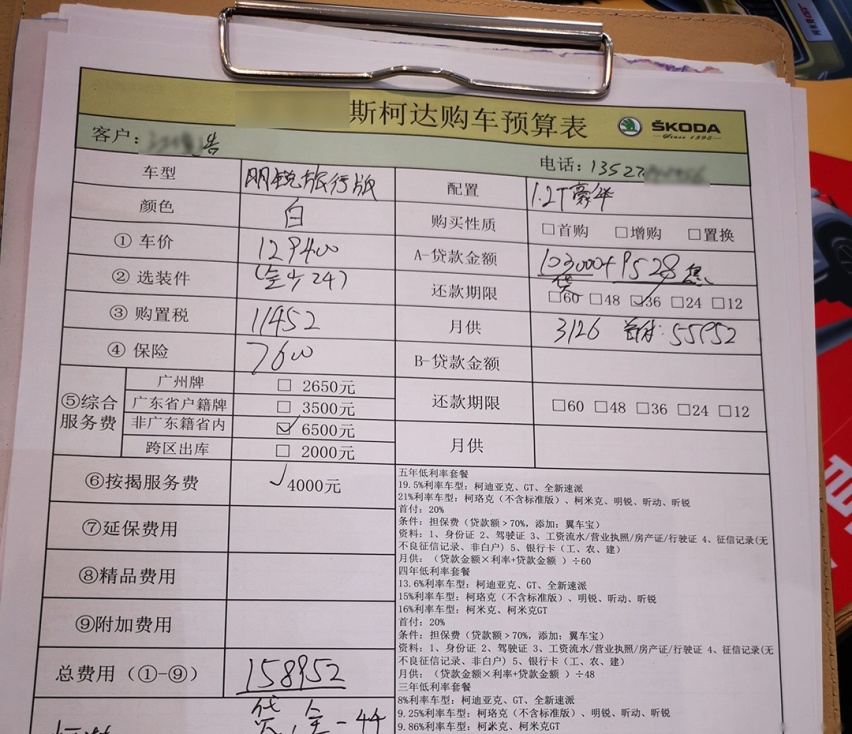 斯柯达购车预算表 ŠKODA
Since 1895
客户: 告 电话: 13527
车型 明锐旅行版 配置 1.2T豪华
颜色 白 购买性质 □首购 □增购 □置换
①车价 129400 A-贷款金额 103000+9528
②选装件 还款期限 □60 □48 ☑36 □24 □12
③购置税 11452 月供 3126 首付: 55952
④保险 7600 B-贷款金额
⑤综合服务费 广州牌 □ 2650元
广东省户籍牌 □ 3500元 还款期限 □60 □48 □36 □24 □12
非广东籍省内 ☑ 6500元
跨区出库 □ 2000元 月供
⑥按揭服务费 ✓4000元
⑦延保费用
⑧精品费用
⑨附加费用
总费用（①-⑨） 158952
五年低利率套餐
19.5%利率车型: 柯迪亚克、GT、全新速派
21%利率车型: 柯珞克（不含标准版）、柯米克、明锐、昕动、昕锐
首付: 20%
条件: 担保费（贷款额>70%, 添加: 翼车宝）
资料: 1、身份证 2、驾驶证 3、工资流水/营业执照/房产证/行驶证 4、征信记录(无
不良征信记录、非白户) 5、银行卡（工、农、建）
月供: （贷款金额×利率+贷款金额 ）÷60
四年低利率套餐
13.6%利率车型: 柯迪亚克、GT、全新速派
15%利率车型: 柯珞克（不含标准版）、明锐、昕动、昕锐
16%利率车型: 柯米克、柯米克GT
首付: 20%
条件: 担保费（贷款额>70%, 添加: 翼车宝）
资料: 1、身份证 2、驾驶证 3、工资流水/营业执照/房产证/行驶证 4、征信记录(无
不良征信记录、非白户) 5、银行卡（工、农、建）
月供: （贷款金额×利率+贷款金额 ）÷48
三年低利率套餐
8%利率车型: 柯迪亚克、GT、全新速派
9.25%利率车型: 柯珞克（不含标准版）、明锐、昕动、昕锐
9.86%利率车型: 柯米克、柯米克GT